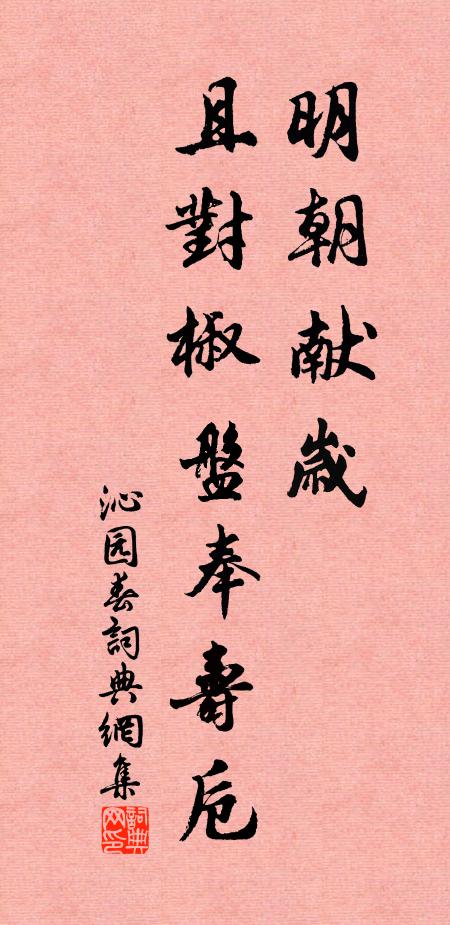 明朝献歳
且對椒盤奉壽卮
沁园春詞典網集
詞典网印